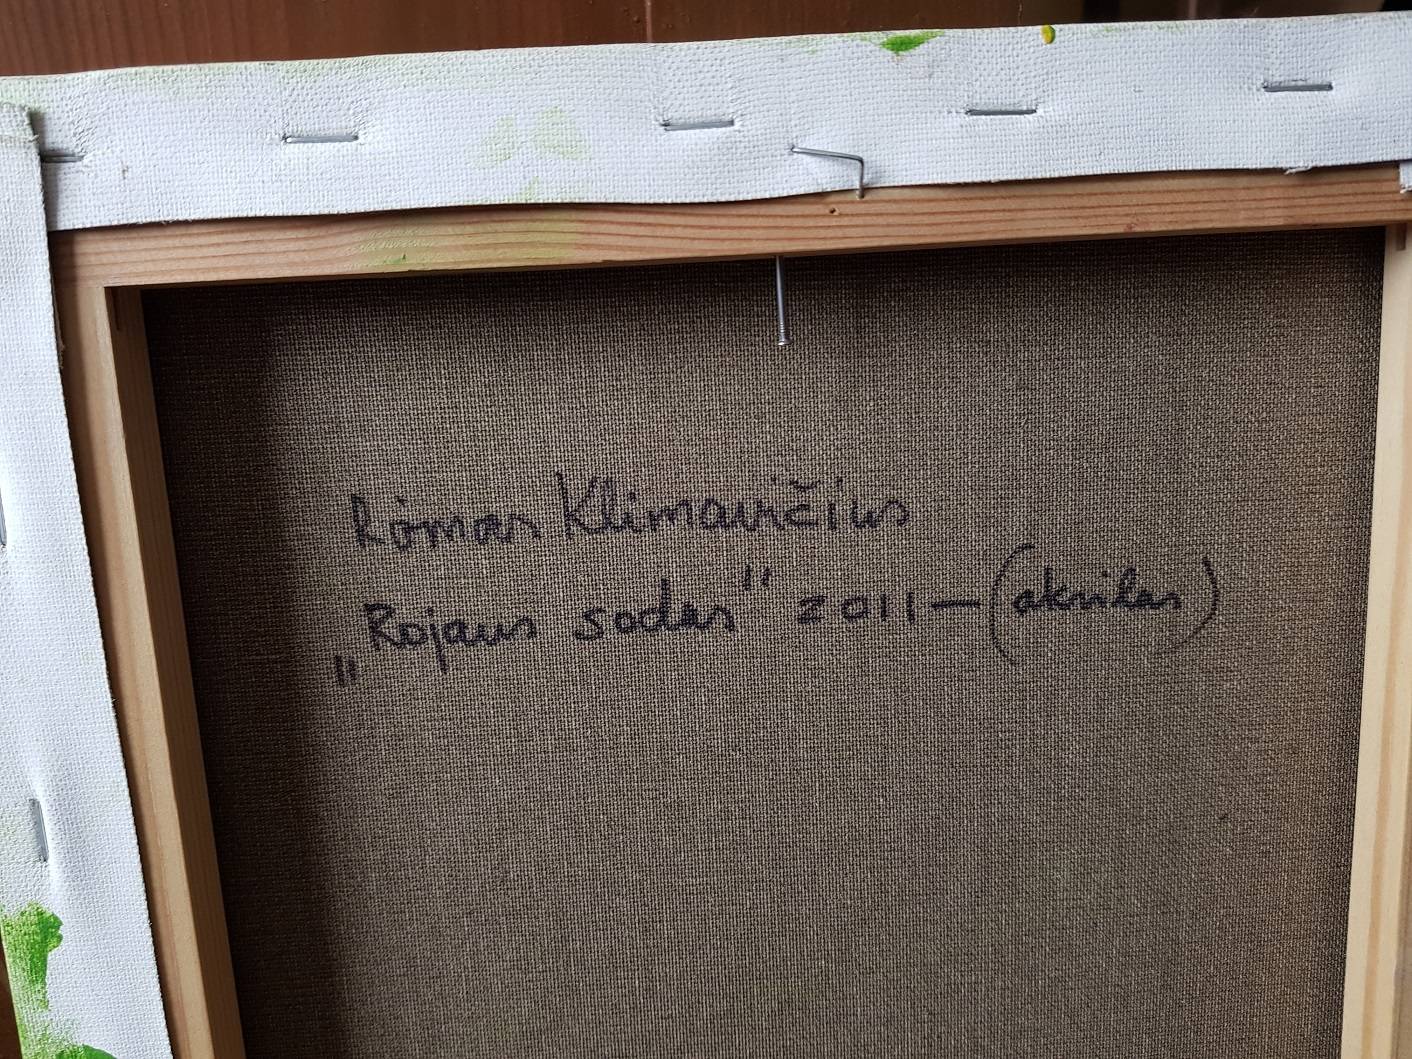 Romas Klimavičius
„Rojaus sodas" 2011 — (akrilas)